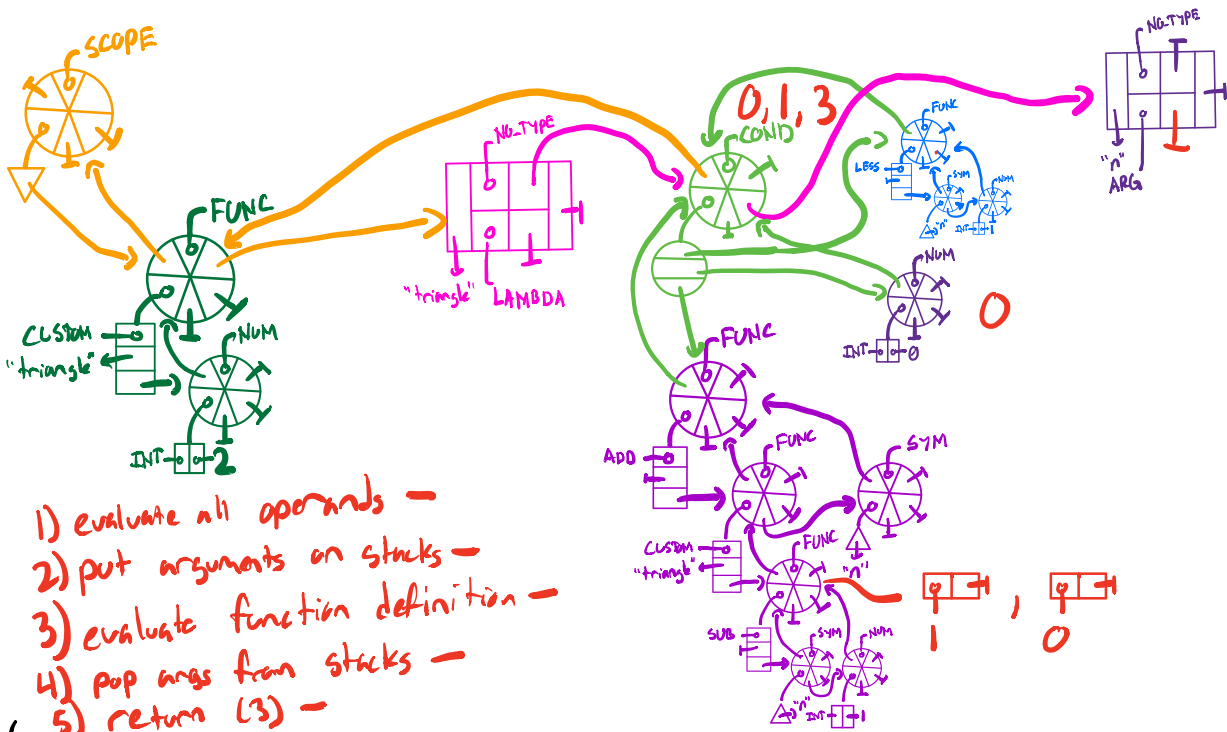 SCOPE
FUNC
CUSTOM
"triangle"
NUM
INT
2
NO_TYPE
"triangle"
LAMBDA
0, 1, 3
COND
FUNC
LESS
SYM
NUM
"n"
INT
1
NO_TYPE
"n"
ARG
NUM
INT
0
0
FUNC
ADD
FUNC
SYM
"n"
CUSTOM
"triangle"
FUNC
SUB
SYM
NUM
"n"
INT
1
1
,
0
1) evaluate all operands –
2) put arguments on stacks –
3) evaluate function definition –
4) pop args from stacks –
5) return (3) –